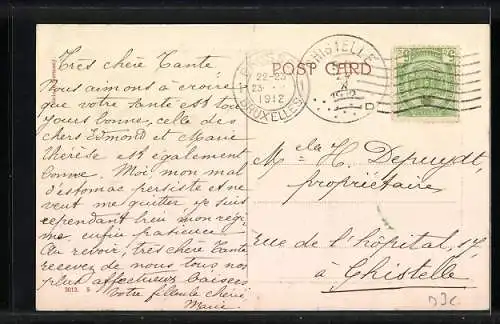 Très chère Tante
Nous aimons à croire
que votre santé est tou
jours bonne, celle des
chers Edmond et Marie
Thérèse est également
bonne. Moi mon mal
d'estomac persiste et ne
veut me quitter je suis
cependant bien mon régi
me, enfin patience.
Au revoir, très chère Tante
recevez de nous tous nos
plus affectueux baisers
Votre filleule chérie
Marie
3013. S
BRUXELLES
22-23
23
1912
BRUXELLES
POST CARD
GHISTELLE
X
1912
5 5
Melle H. Depuydt,
propriétaire
rue de l'hôpital, 17
à Ghistelle
D3C